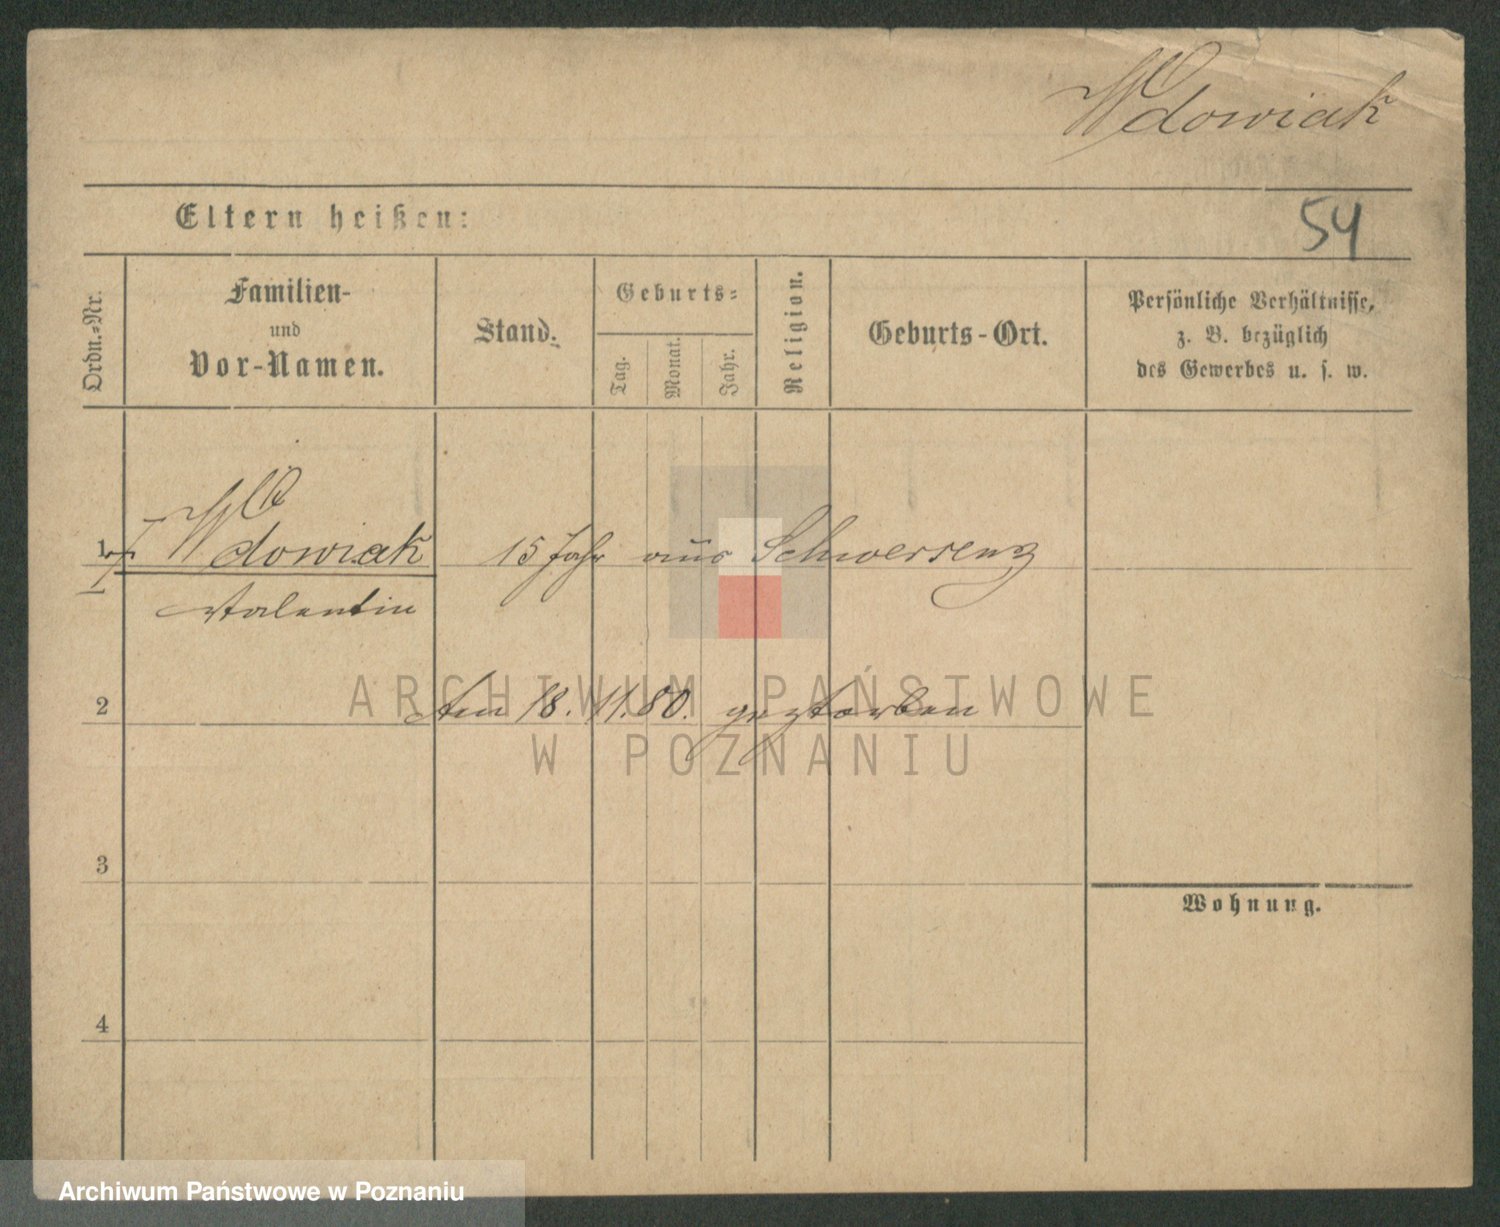 Wdowiak
Eltern heißen:
54
Ordn.=Nr.
Familien-
und
Vor-Namen.
Stand.
Geburts=
Tag.
Monat.
Jahr.
Religion.
Geburts-Ort.
Persönliche Verhältnisse,
z. B. bezüglich
des Gewerbes u. s. w.
1 Wdowiak 15 Jahr aus Schwersenz
Valentin
2 Am 18.11.80. gestorben
3
Wohnung.
4
ARCHIWUM PAŃSTWOWE
W POZNANIU
Archiwum Państwowe w Poznaniu